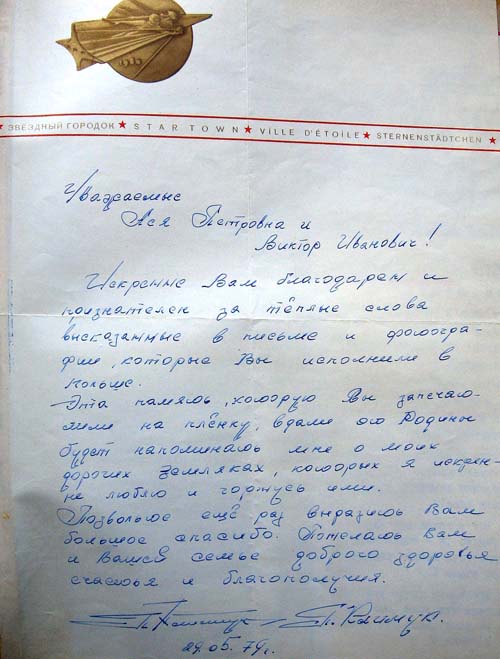 ЗВЕЗДНЫЙ ГОРОДОК ★ STAR TOWN ★ VILLE D'ÉTOILE ★ STERNENSTÄDTCHEN
Уважаемые
Ася Петровна и
Виктор Иванович!
Искренне Вам благодарен и
признателен за тёплые слова
высказанные в письме и фотогра-
фии, которые Вы исполнили в
Польше.
Эта память, которую Вы запечат-
лили на плёнку, вдали от Родины
будет напоминать мне о моих
дорогих земляках, которых я искрен-
не люблю и горжусь ими.
Позвольте ещё раз выразить Вам
большое спасибо. Пожелать Вам
и Вашей семье доброго здоровья
счастья и благополучия.
П. Климук
29.05.79г.